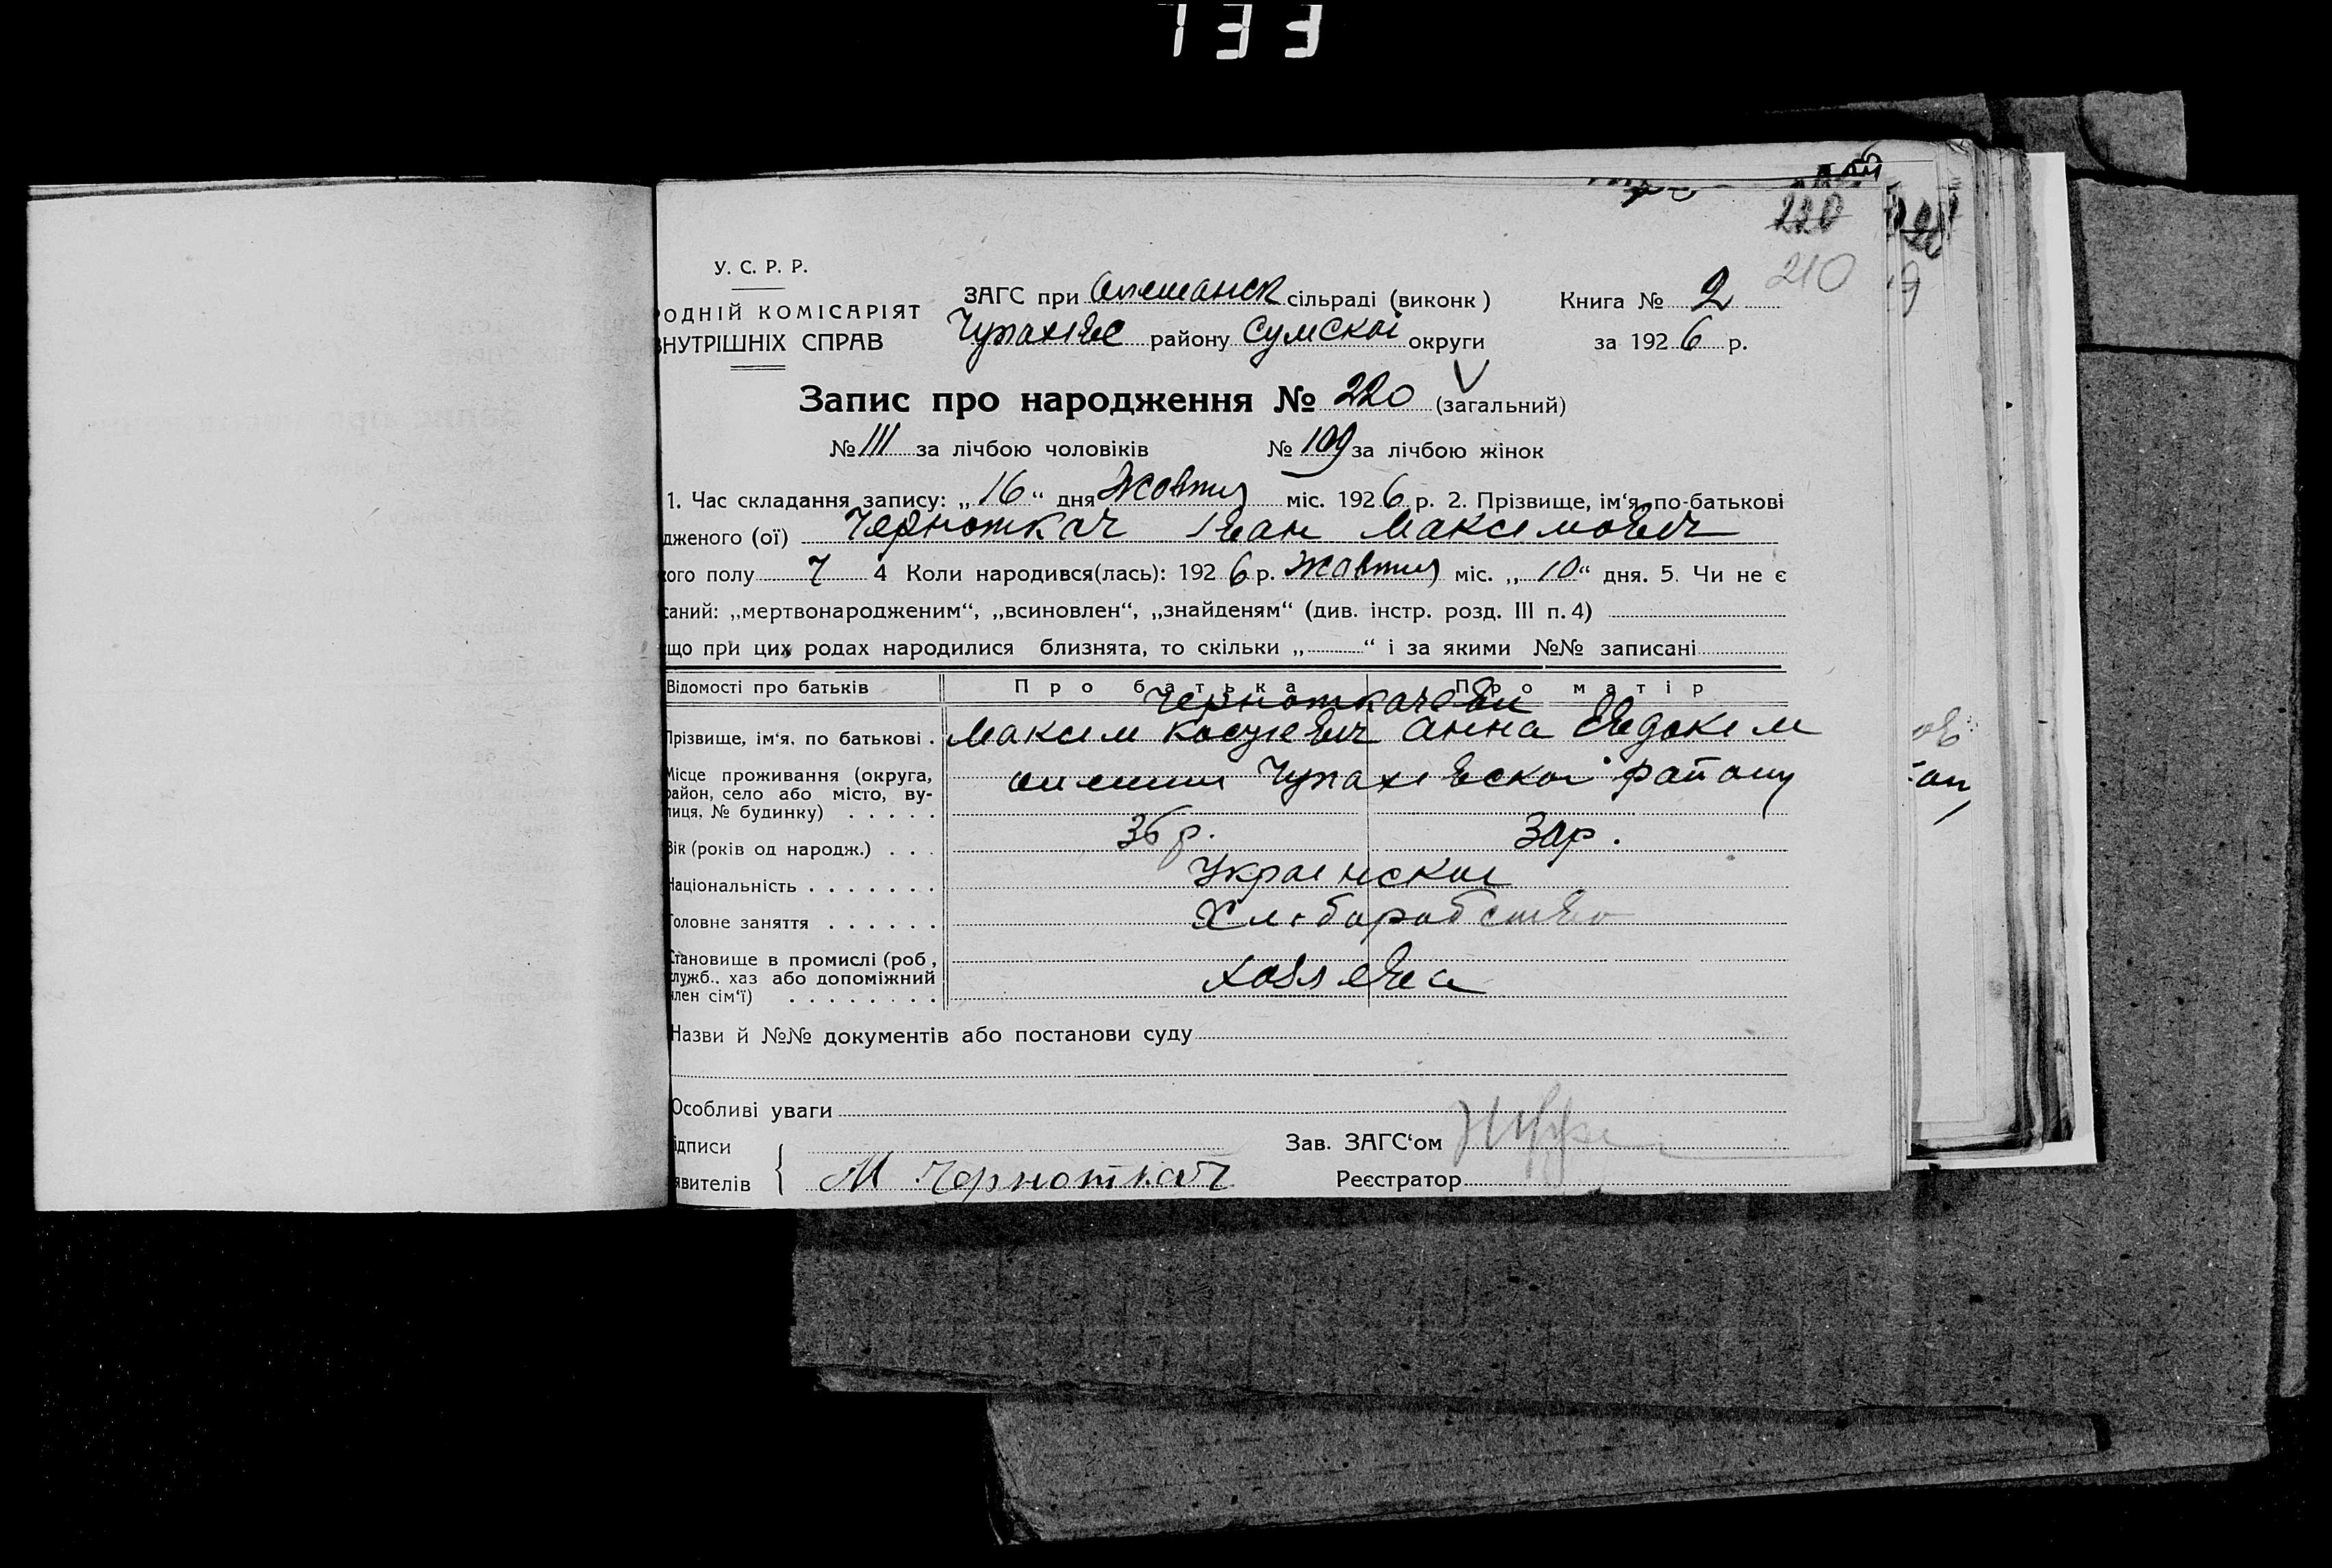 133
220
210
У. С. Р. Р.
ОДНІЙ КОМІСАРІЯТ
НУТРІШНІХ СПРАВ
ЗАГС при Олешанск сільраді (виконк)
Чупахівс району Сумскоі округи
Книга № 2
за 1926 р.
Запис про народження № 220 (загальний)
№ 111 за лічбою чоловіків № 109 за лічбою жінок
1. Час складання запису: „16“ дня Жовтня міс. 1926 р. 2. Прізвище, ім‘я, по-батькові
дженого (ої) Чернοткач Іван Максимович
кого полу Ч 4 Коли народився(лась): 1926 р. Жовтня міс. „10“ дня. 5. Чи не є
саний: „мертвонародженим“, „всиновлен“, „знайденям“ (див. інстр. розд. III п. 4)
що при цих родах народилися близнята, то скільки „ “ і за якими №№ записані
Відомості про батьків Про батька Про матір
Чернοткачеви
Прізвище, ім‘я, по батькові . Максим Анна Євдоким
Місце проживання (округа, район, село або місто, вулиця, № будинку) . . . . . Олешни Чупахівскоі району
Вік (років од народж.) . . . 36 р. 30 р.
Національність . . . . . . . Украінскоі
Головне заняття . . . . . . Хліборобство
Становище в промислі (роб, служб., хаз або допоміжний член сім‘ї) . . . . . . . .
Назви й №№ документів або постанови суду
Особливі уваги
ідписи Зав. ЗАГС‘ом
явителів М Чернοткач Реєстратор